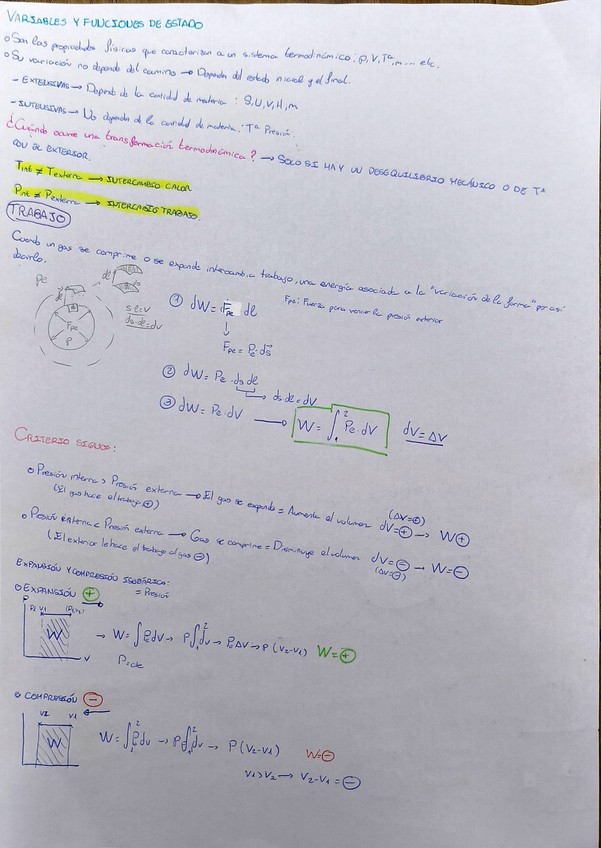 VARIABLES Y FUNCIONES DE ESTADO
○ Son las propiedades físicas que caracterizan a un sistema termodinámico: P, V, Tª, m ... etc.
○ Su variación no depende del camino → Depende del estado inicial y el final.
- EXTENSIVAS → Depende de la cantidad de materia: S, U, V, H, m
- INTENSIVAS → No depende de la cantidad de materia: Tª Presión.
¿Cuándo ocurre una transformación termodinámica? → SOLO SI HAY UN DESEQUILIBRIO MECÁNICO O DE Tª
CON EL EXTERIOR.
Tint ≠ Texterna → INTERCAMBIO CALOR
Pint ≠ Pexterna → INTERCAMBIO TRABAJO.
TRABAJO
Cuando un gas se comprime o se expande intercambia trabajo, una energía asociada a la "variación de la forma" por así
decirlo.
Pe
dl
dl
Fpe
P
S·l=V
ds·dl=dV
① dW = Fpe dl
Fpe: Fuerza para vencer la presión exterior
↓
Fpe = Pe·ds
② dW = Pe·ds dl
→ ds·dl = dV
③ dW = Pe·dV → W = ∫₁² Pe·dV
dV = ΔV
CRITERIO SIGNOS:
○ Presión interna > Presión externa → El gas se expande = Aumenta el volumen dV=⊕ → W⊕
(ΔV=⊕)
(El gas hace el trabajo ⊕)
○ Presión interna < Presión externa → Gas se comprime = Disminuye el volumen dV=⊖ → W=⊖
(El exterior le hace el trabajo al gas ⊖)
(ΔV=⊖)
EXPANSIÓN Y COMPRESIÓN ISOBÁRICA:
= Presión
○ EXPANSIÓN ⊕
P
V1
W
V
→ W = ∫PedV → P∫₁²dV → PeΔV → P (V2-V1) W=⊕
P=cte
○ COMPRESIÓN ⊖
V2 V1
W
W = ∫₁²PdV → P∫₁²dV → P (V2-V1) W=⊖
V1>V2 → V2-V1=⊖